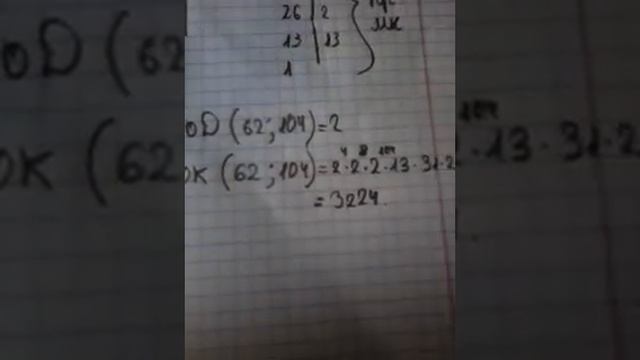 26 | 2
13 | 13
1
ОD (62; 104) = 2
ОК (62; 104) = 2 · 2 · 2 · 13 · 31 · 2
4 8 104
= 3224.